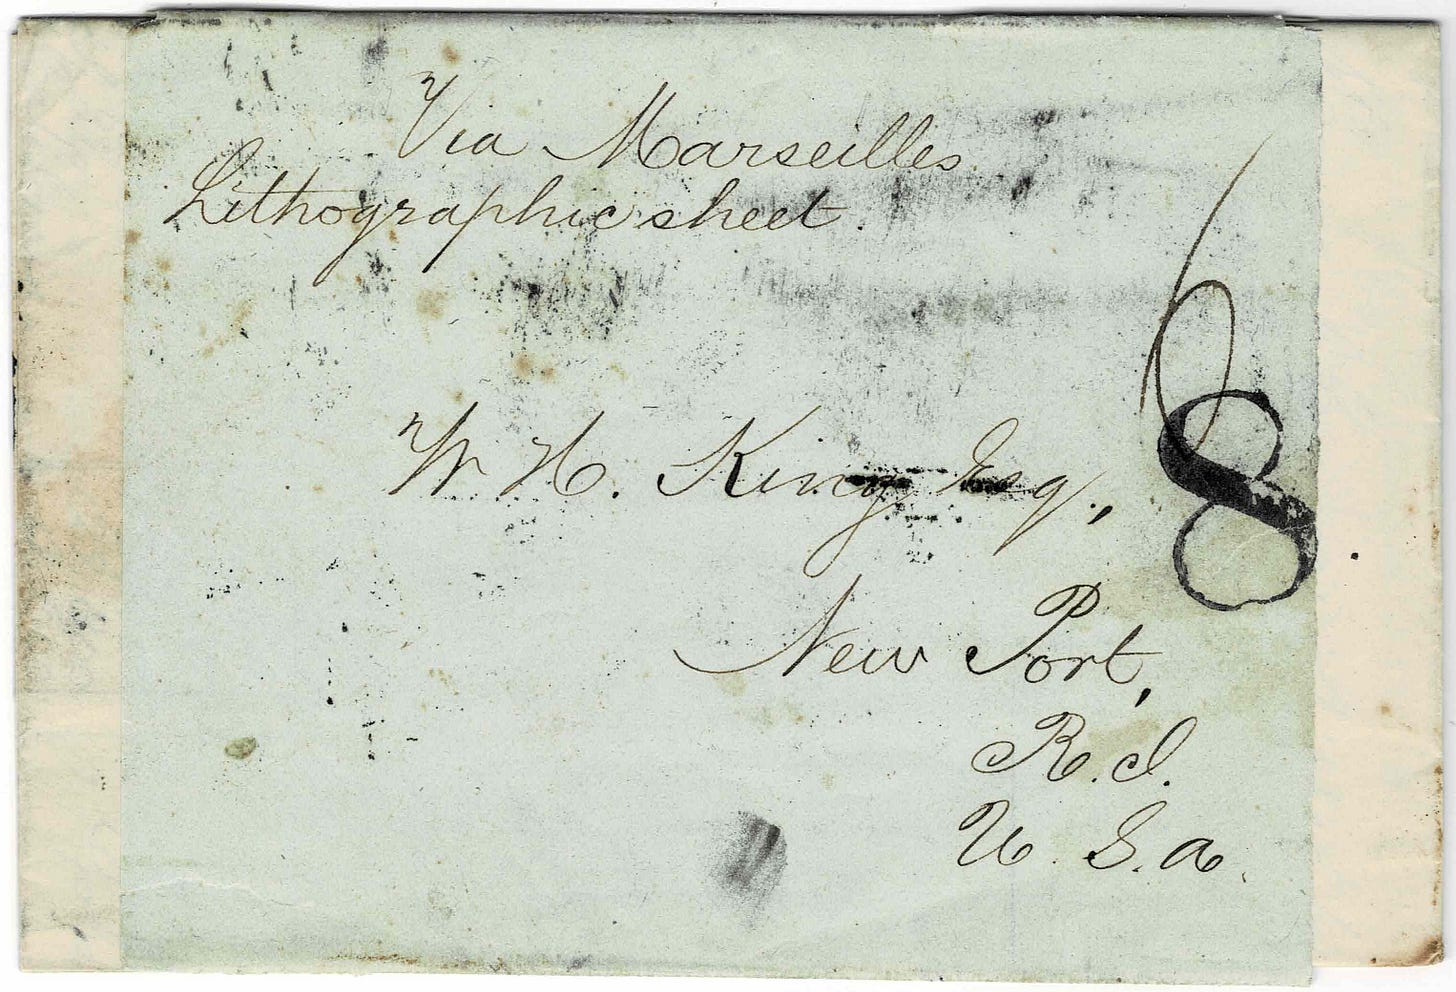 Via Marseilles
Lithographic sheet.
6
8
W H. King Esq.,
New Port,
R. I.
U. S. A.